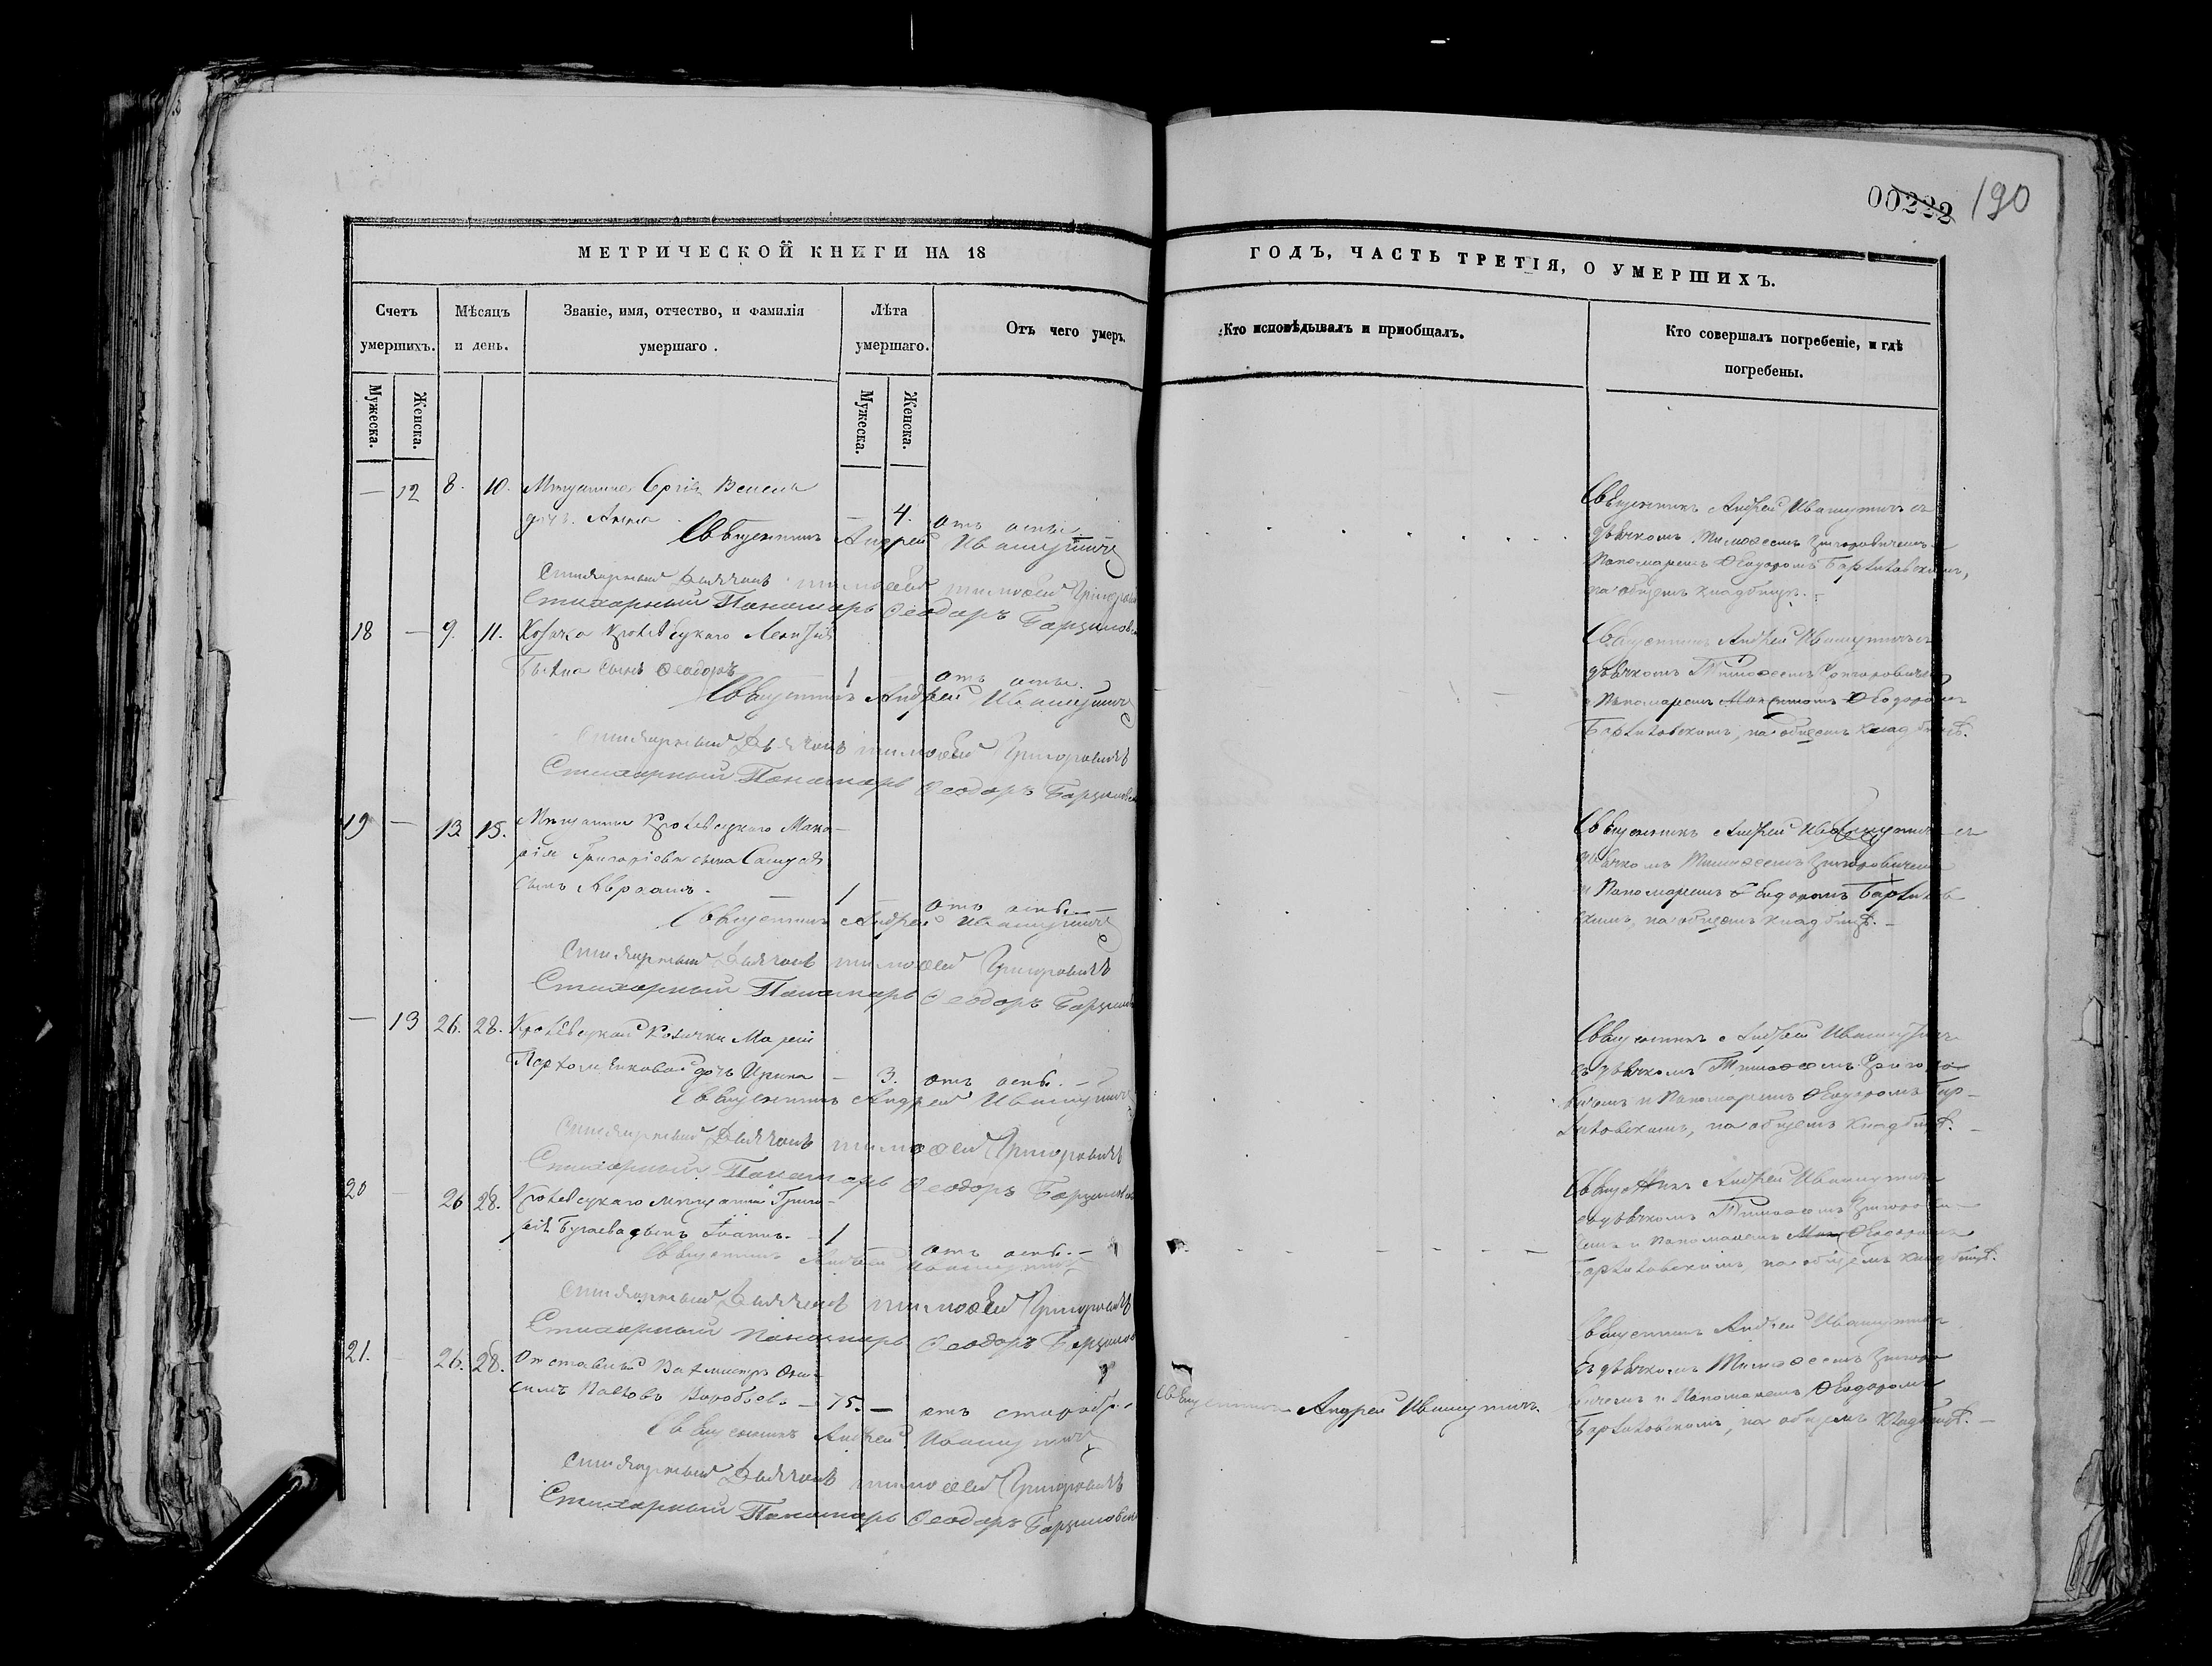 00222 190
МЕТРИЧЕСКОЙ КНИГИ НА 18
Счетъ умершихъ.
Мѣсяцъ и день.
Званіе, имя, отчество, и фамилія умершаго.
Лѣта умершаго.
Отъ чего умеръ.
Мужеска.
Женска.
Мужеска.
Женска.
— 12 8. 10. Мещанина Сергія
дочь Анна — 4. отъ оспы.
Священникъ Андрей Ивашутичъ
Стихарный Дьячокъ Тимоѳей Григоровичъ
Стихарный Пономарь Ѳеодоръ
18 — 9. 11. Козака Кролевецкаго Леонтія
сынъ Ѳеодоръ 1 отъ оспы.
Священникъ Андрей Ивашутичъ
Стихарный Дьячокъ Тимоѳей Григоровичъ
Стихарный Пономарь Ѳеодоръ
19 — 13 15. Мещанина Кролевецкаго Мака-
рія Григоріева сына
сынъ Авраамъ. — 1 отъ оспы. —
Священникъ Андрей Ивашутичъ
Стихарный Дьячокъ Тимоѳей Григоровичъ
Стихарный Пономарь Ѳеодоръ
— 13 26. 28. Кролевецкой Козачки Маріи
Пархоменковой дочь Ирина — 3. отъ оспы. —
Священникъ Андрей Ивашутичъ
Стихарный Дьячокъ Тимоѳей Григоровичъ
Стихарный Пономарь Ѳеодоръ
20 — 26 28. Кролевецкаго мещанина Григо-
рія Бугаева сынъ Іоаннъ. — 1 отъ оспы. —
Священникъ Андрей Ивашутичъ
Стихарный Дьячокъ Тимоѳей Григоровичъ
Стихарный Пономарь Ѳеодоръ
21. — 26. 28. Отставный Вахмистръ Они-
симъ Павловъ Воробьевъ — 75. — отъ старости.
Священникъ Андрей Ивашутичъ
Стихарный Дьячокъ Тимоѳей Григоровичъ
Стихарный Пономарь Ѳеодоръ
ГОДЪ, ЧАСТЬ ТРЕТІЯ, О УМЕРШИХЪ.
Кто исповѣдывалъ и пріобщалъ.
Кто совершалъ погребеніе, и гдѣ погребены.
Священникъ Андрей Ивашутичъ съ
дьячкомъ Тимоѳеемъ Григоровичемъ
Пономаремъ Ѳеодоромъ
на общемъ кладбищѣ. —
Священникъ Андрей Ивашутичъ съ
дьячкомъ Тимоѳеемъ Григоровичемъ
и Пономаремъ Ѳеодоромъ
на общемъ кладбищѣ.
Священникъ Андрей Ивашутичъ съ
дьячкомъ Тимоѳеемъ Григоровичемъ
и Пономаремъ Ѳеодоромъ
скимъ, на общемъ кладбищѣ. —
Священникъ Андрей Ивашутичъ
съ дьячкомъ Тимоѳеемъ Григоро-
вичемъ и Пономаремъ Ѳеодоромъ
на общемъ кладбищѣ. —
Священникъ Андрей Ивашутичъ
съ дьячкомъ Тимоѳеемъ Григорови-
чемъ и Пономаремъ Ѳеодоромъ
на общемъ кладбищѣ.
Священникъ Андрей Ивашутичъ.
Священникъ Андрей Ивашутичъ
съ дьячкомъ Тимоѳеемъ Григоро-
вичемъ и Пономаремъ Ѳеодоромъ
на общемъ кладбищѣ. —